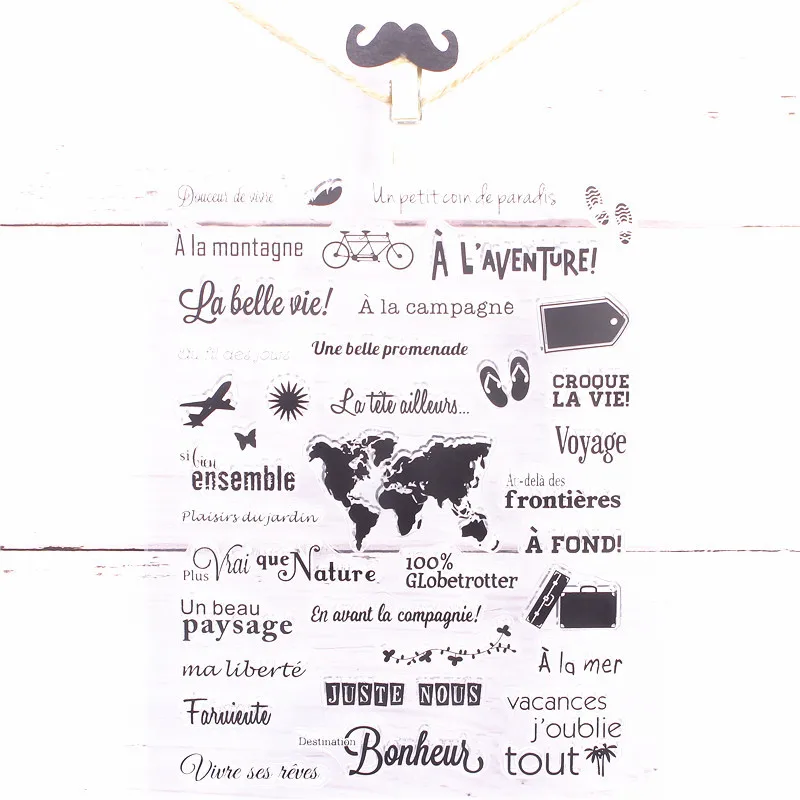 Douceur de vivre
Un petit coin de paradis
À la montagne
À L'AVENTURE!
La belle vie!
À la campagne
Au fil des jours
Une belle promenade
CROQUE
LA VIE!
La tête ailleurs...
Voyage
si bien
ensemble
Au-delà des
frontières
Plaisirs du jardin
À FOND!
Plus Vrai que Nature
100%
GLobetrotter
Un beau
paysage
En avant la compagnie!
À la mer
ma liberté
JUSTE NOUS
vacances
j'oublie
tout
Farniente
Destination
Bonheur
Vivre ses rêves